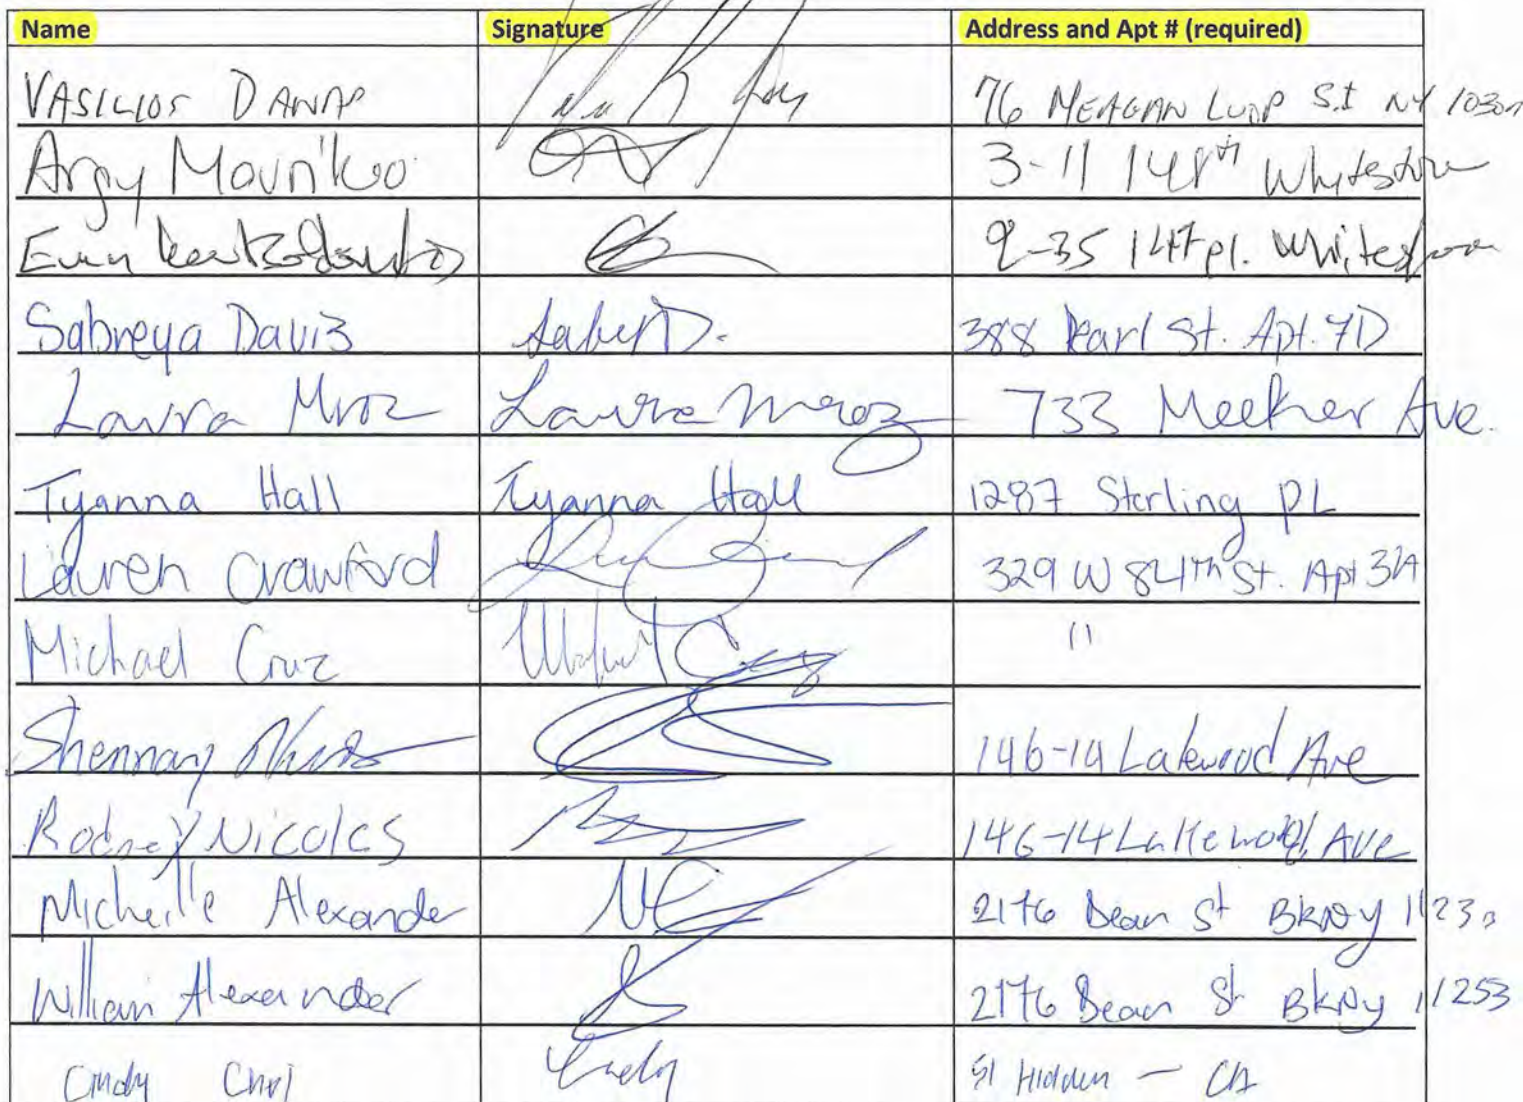 Name Signature Address and Apt # (required)
VASILIOS DANAS 76 MEAGAN LOOP S.I NY
Argy 3-11 148th Whitestone
9-35 147 pl. Whitestone
Sabreya Davis D. 388 Pearl St. Apt. 7D
Laura Mroz Laura Mroz 733 Meeker Ave.
Tyanna Hall Tyanna Hall 1287 Sterling PL
Lauren Crawford 329 W 84th St. Apt
Michael Cruz 11
146-14 Lakewood Ave
Rodney Nicolas 146-14 Lakewood Ave
Michelle Alexander 2176 Dean St BkNy
William Alexander 2176 Dean St BkNy
Cindy Choi Cindy 51 Hidden - CA